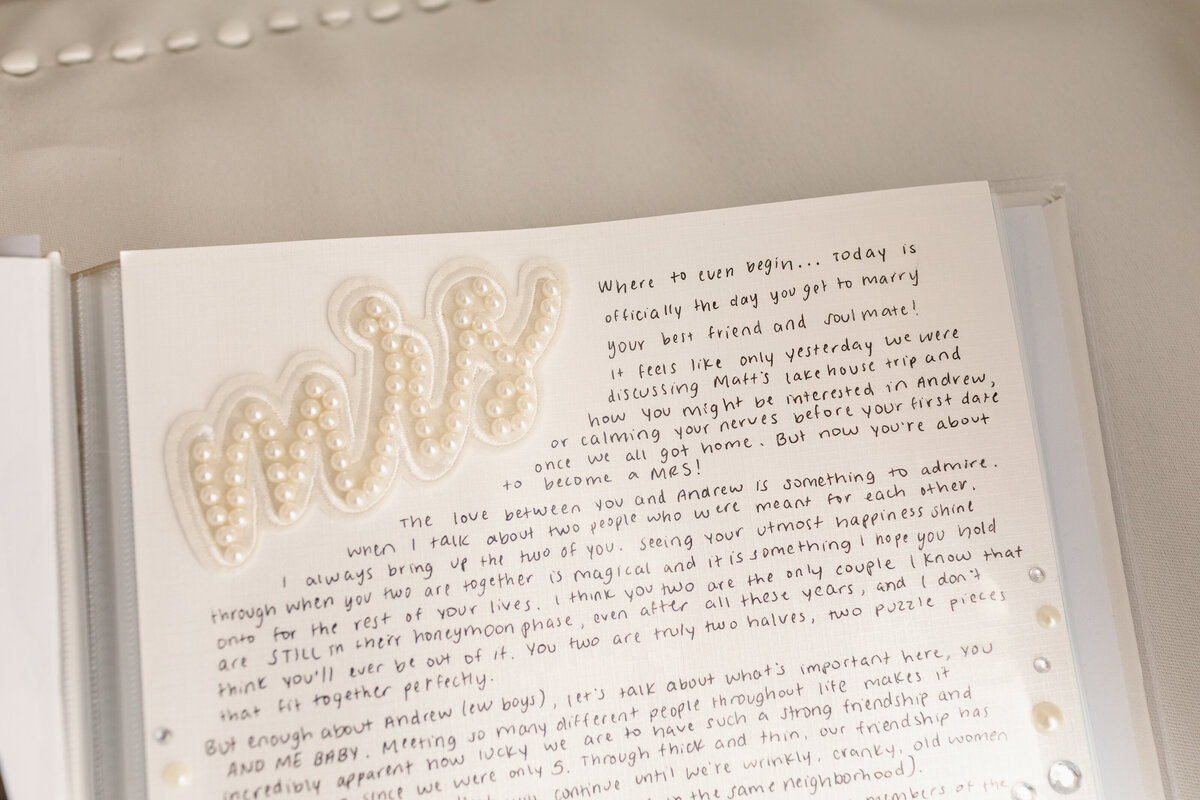 mrs
Where to even begin... Today is
officially the day you get to marry
your best friend and soulmate!
It feels like only yesterday we were
discussing Matt's lakehouse trip and
how you might be interested in Andrew,
or calming your nerves before your first date
once we all got home. But now you're about
to become a MRS!
The love between you and Andrew is something to admire.
When I talk about two people who were meant for each other.
I always bring up the two of you. Seeing your utmost happiness shine
through when you two are together is magical and it is something I hope you hold
onto for the rest of your lives. I think you two are the only couple I know that
are STILL in their honeymoon phase, even after all these years, and I don't
think you'll ever be out of it. You two are truly two halves, two puzzle pieces
that fit together perfectly.
But enough about Andrew (ew boys), let's talk about what's important here, you
AND ME BABY. Meeting so many different people throughout life makes it
incredibly apparent how lucky we are to have such a strong friendship and
since we were only 5. Through thick and thin, our friendship has
continue until we're wrinkly, cranky, old women
in the same neighborhood).
members of the